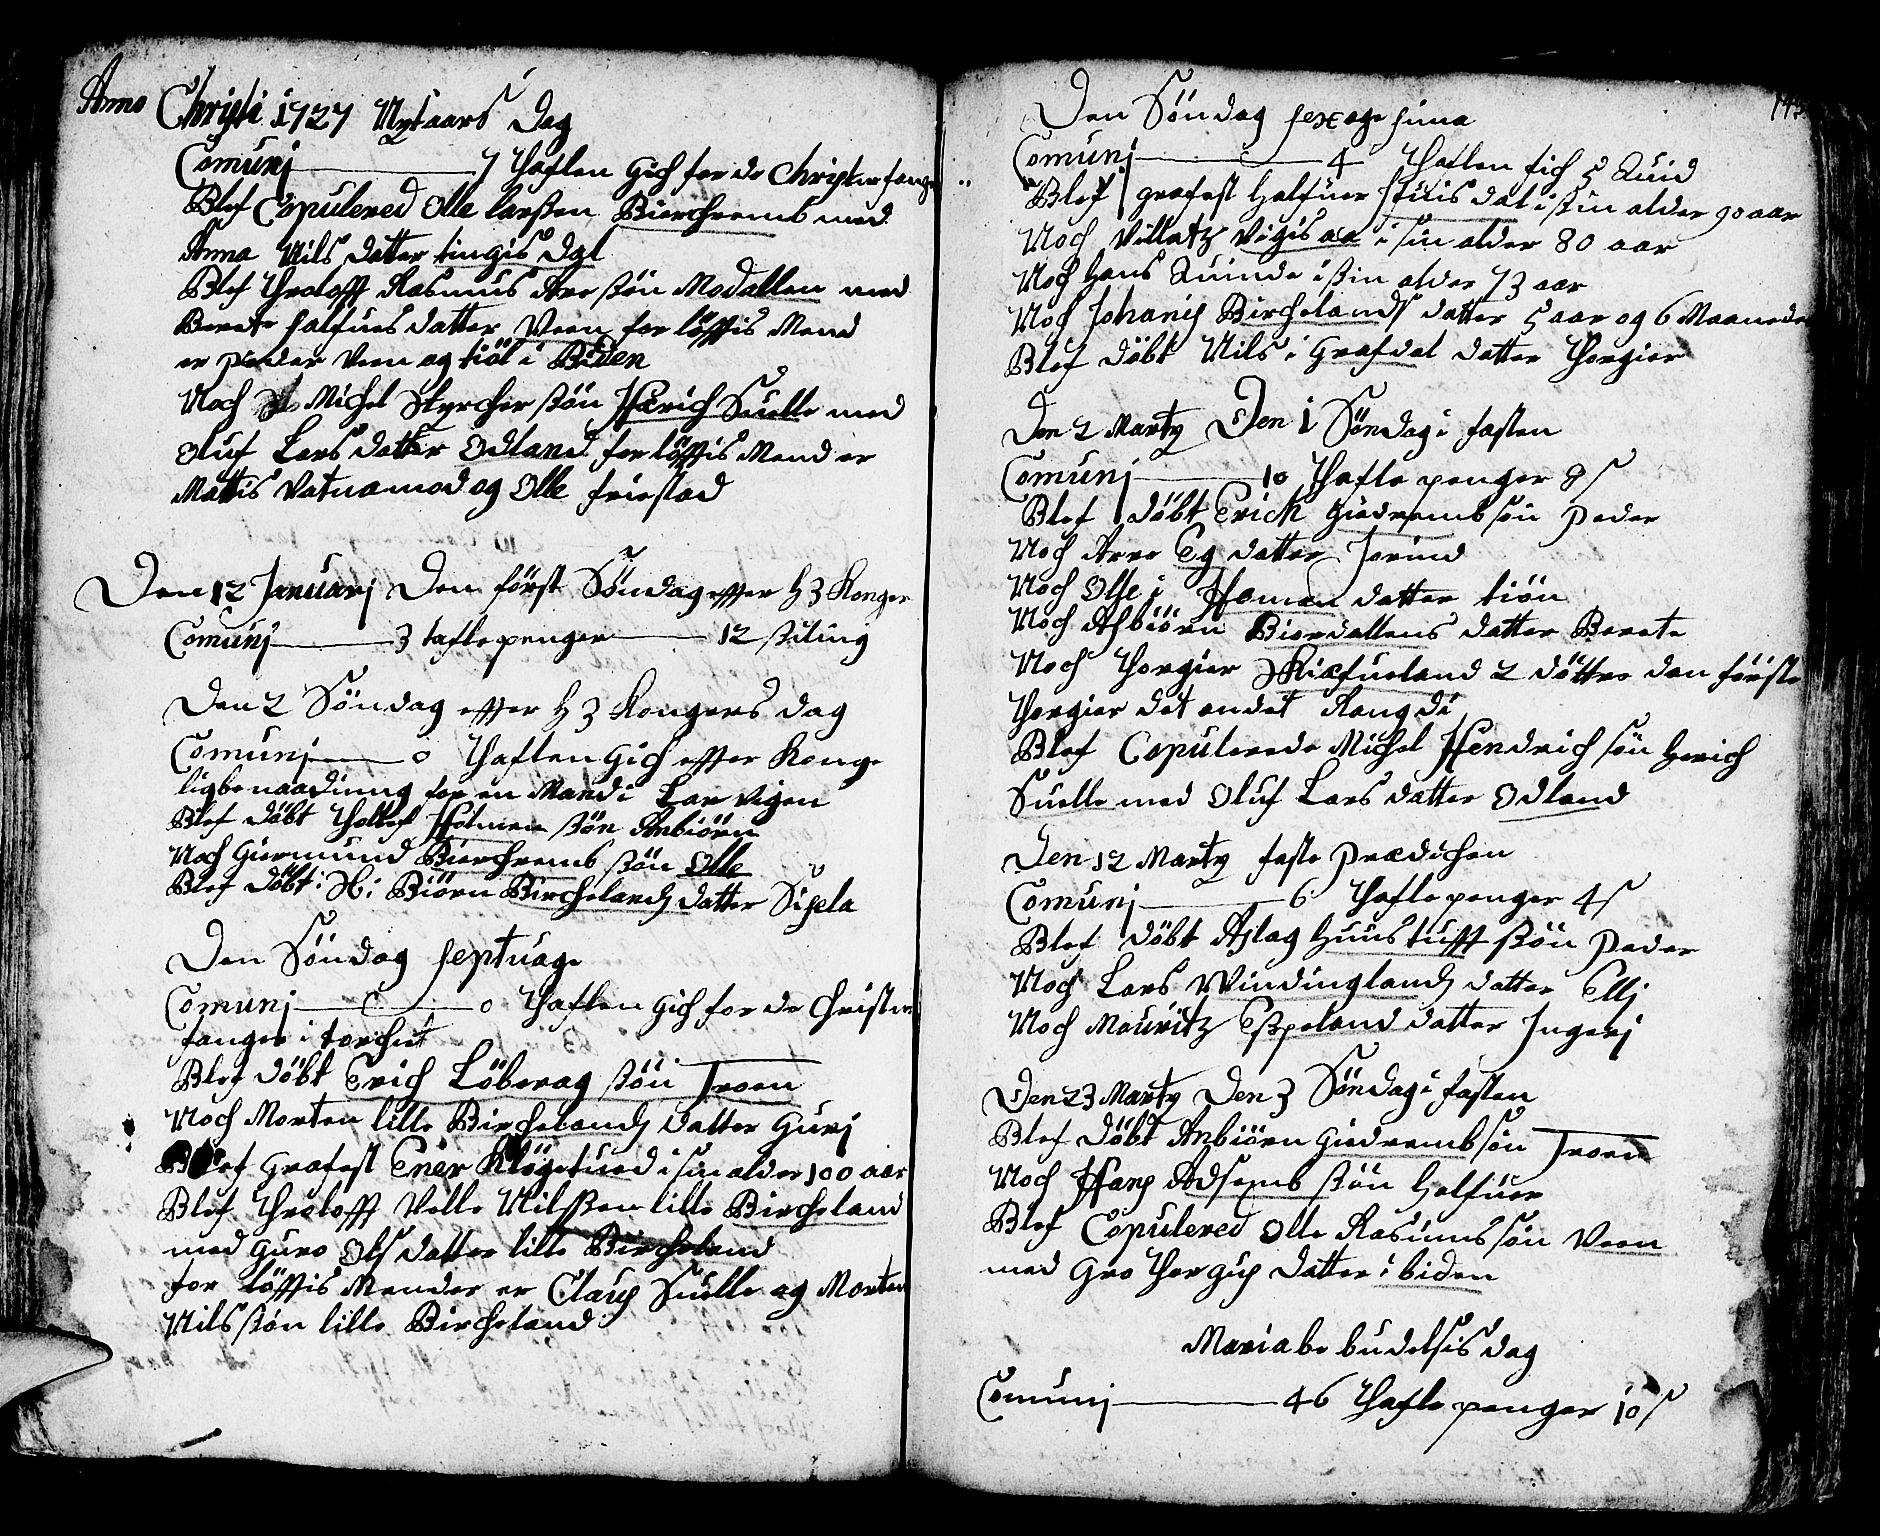 Anno Christi 1727 Nytaars Dag
Comunj 7 Taflen gich for de Christne fange
Blef Copulered Olle Larßen Bierchrems med
Anna Nils datter tingis dal
Blef Throlofft Rasmus Areßön Modallen med
Berete halfuers datter Veen, for löfftis Mend
er Peder Veen og tiöl i Biden
Noch Michel Styrcherßön Hærich Suelle med
Oluf Lars datter Odland for löfftis Mend er
Mattis Vatnamod og Olle friestad
Den 12 Januarj Den först Söndag effter H 3 Konger
Comunj 3 taflepenger 12 skiling
Den 2 Söndag effter H 3 Kongers dag
Comunj 0 Taflen gich effter Konge
lig benaading for en Mand i Lar vigen
Blef döbt Tollef Holmen ßön Anbiörn
Noch Giermund Bierchrems ßön Olle
Blef döbt i H: Biörn Birchelands datter Sißela
Den Söndag septuage
Comunj 0 Taflen gich for de Christne
fanger i törchit
Blef döbt Erich Löberag ßön Troen
Noch Morten lille Birchelands datter Gurj
Blef grafest Ener Klögetued i sin alder 100 aar
Blef Throlofft Velle Nilßen lille Bircheland
med Guro Ols datter lille Bircheland
for löfftis Mender er Claus Suelle og Morten
Nils ßön lille Bircheland
143
Den Söndag sexagesima
Comunj 4 Taflen fich 5 Quid
Blef grafest Halfuer Stuis dal i ßin alder 90 aar
Noch Villatz Vigisaa i sin alder 80 aar
Noch Hans Quinde i ßin alder 73 aar
Noch Johanis Birchelands datter 5 aar og 6 Maaneder
Blef döbt Nils i Grafdal datter Thorgier
Den 2 Marty Den 1 Söndag i fasten
Comunj 10 Tafle penger 8 s
Blef döbt Erich Giedrembs sön Peder
Noch Arne Eg datter Jorind
Noch Olle i Homen datter tiön
Noch Asbiörn Bierdallens datter Berete
Noch Thorgier Skiæfueland 2 döttre den förste
Thorgier det andet Rangdi
Blef Copulerede Michel Hendrich sön Herich
Suelle med Oluf Lars datter Odland
Den 12 Marty faste Prædichen
Comunj 6 Tafle penger 4 s
Blef döbt Aslag Huustufft ßön Peder
Noch Lars Windinglands datter Ellj
Noch Mouritz Eßpeland datter Ingerj
Den 23 Marty Den 3 Söndag i fasten
Blef döbt Anbiörn Giedrembs sön Troen
Noch Hans Adsems ßön Halfuer
Blef Copulered Olle Rasmus sön Veen
med Gro Thorgus datter i biden
Maria bebudelsis dag
Comunj 46 Tafle penger 10 s